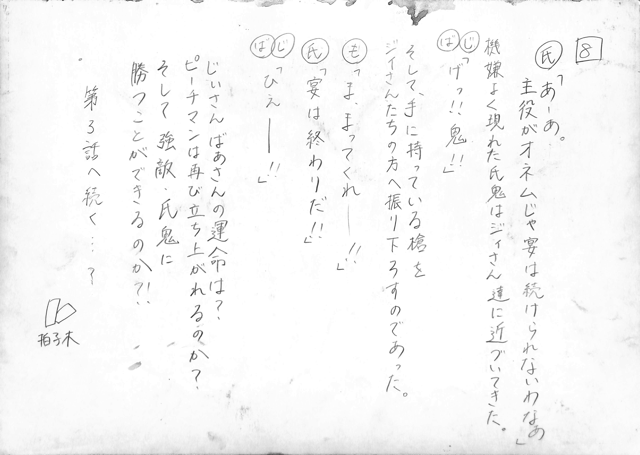 8
氏「あーあ。
主役がオネムじゃ宴は続けられないわなあ」
機嫌よく現れた氏鬼はジィさん達に近づいてきた。
じば「げっ!!鬼!!」
そして、手に持っている槍を
ジィさんたちの方へ振り下ろすのであった。
も「ま、まってくれ――!!」
氏「宴は終わりだ!!」
じば「ひぇ――!!」
じぃさんばあさんの運命は?
ピーチマンは再び立ち上がれるのか?
そして強敵・氏鬼に
勝つことができるのか?!
第3話へ続く…?
拍子木